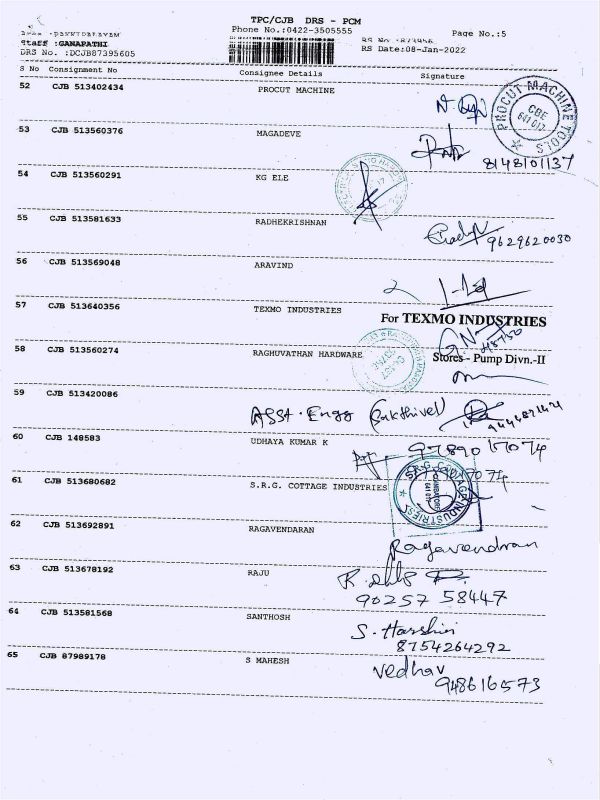 TPC/CJB DRS - PCM
Phone No.:0422-3505555 Page No.:5
Staff :GANAPATHI
DRS No. :DCJB87395605 RS Date:08-Jan-2022
S No Consignment No Consignee Details Signature
52 CJB 513402434 PROCUT MACHINE
PROCUT MACHINE TOOLS
CBE
53 CJB 513560376 MAGADEVE
8148101137
54 CJB 513560291 KG ELE
55 CJB 513581633 RADHEKRISHNAN
9629620030
56 CJB 513569048 ARAVIND
57 CJB 513640356 TEXMO INDUSTRIES
For TEXMO INDUSTRIES
58 CJB 513560274 RAGHUVATHAN HARDWARE
Stores - Pump Divn.-II
59 CJB 513420086
Asst. Engg Sakthivel
60 CJB 148583 UDHAYA KUMAR K
61 CJB 513680682 S.R.G. COTTAGE INDUSTRIES
S.R.G. COTTAGE INDUSTRIES
62 CJB 513692891 RAGAVENDARAN
Ragavendran
63 CJB 513678192 RAJU
90257 58447
64 CJB 513581568 SANTHOSH
S. Harshini
8754264292
65 CJB 87989178 S MAHESH
vedhav
948616573